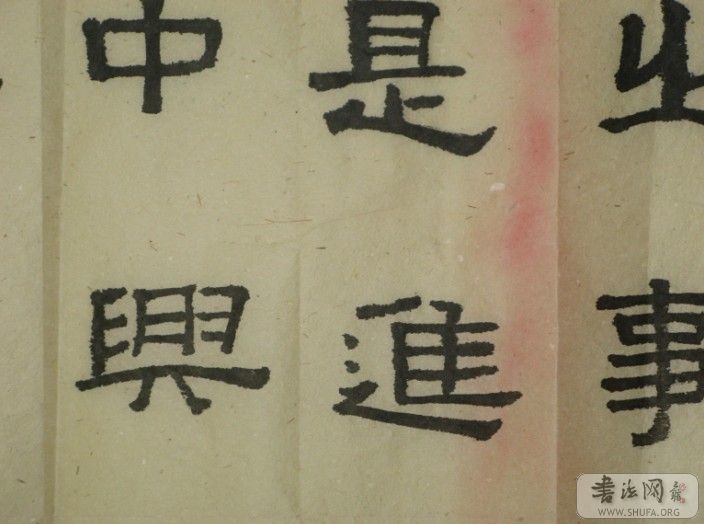 之事
是進
中興
書法网
WWW.SHUFA.ORG